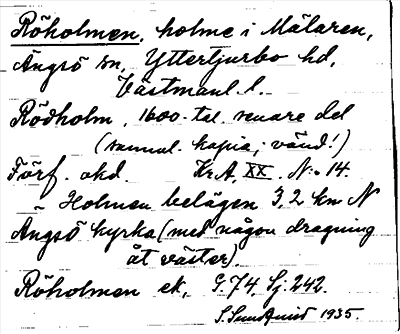 Röholmen, holme i Mälaren,
Ängsö sn, Yttertjurbo hd,
Västmanl. l.
Rödholm, 1600-tal. senare del
(sannol. kopia; vänd!)
Förf. okd. Kr.A, XX. N:o 14.
– Holmen belägen 3,2 km N
Ängsö kyrka (med någon dragning
åt väster).
Röholmen ek, G.74, Sj.242.
S. Sundquist 1935.